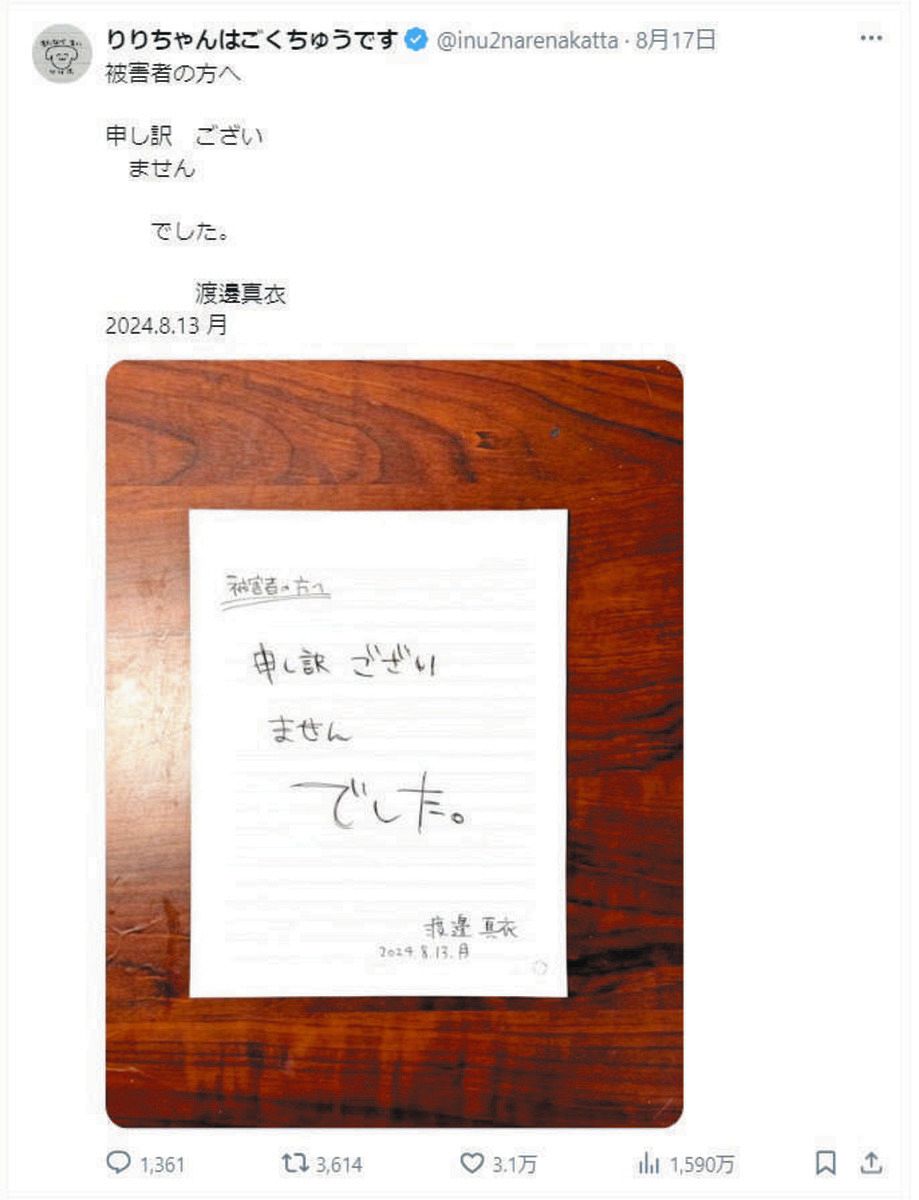 りりちゃんはごくちゅうです @inu2narenakatta · 8月17日
被害者の方へ
申し訳　ござい
ません
でした。
渡邊真衣
2024.8.13 月
被害者の方へ
申し訳 ござい
ません
でした。
渡邊 真衣
2024.8.13.月
1,361 3,614 3.1万 1,590万